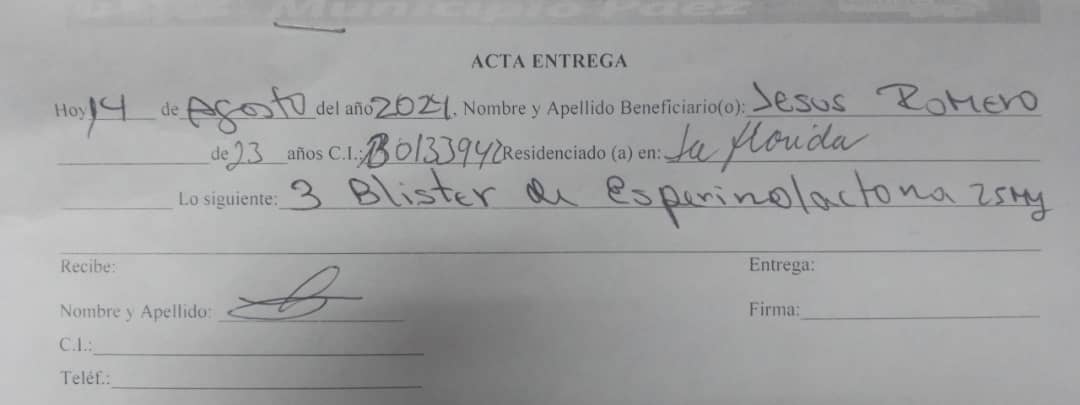 Municipio Páez
ACTA ENTREGA
Hoy 14 de Agosto del año 2024, Nombre y Apellido Beneficiario(o): Jesus Romero
de 23 años C.I.: Residenciado (a) en: La florida
Lo siguiente: 3 Blister de Esperinolactona 25Mg
Recibe: Entrega:
Nombre y Apellido: Firma:
C.I.:
Teléf.: